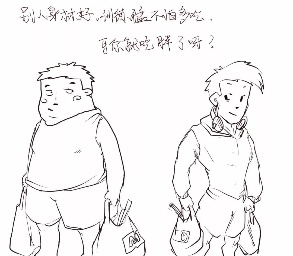 别人身材好,训练猛不怕多吃.
可你就吃胖了呀?